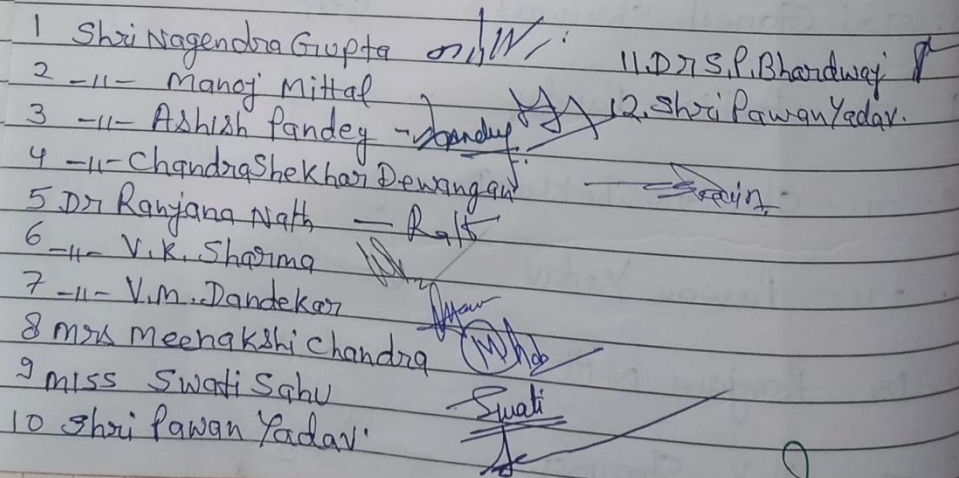 1 Shri Nagendra Gupta
2 -11- Manoj Mittal
3 -11- Ashish Pandey - Pandey
4 -11- Chandrashekhar Dewangan
5 Dr Ranjana Nath -
6 -11- V.K. Sharma
7 -11- V.M. Dandekar
8 Mrs Meenakshi Chandra
9 Miss Swati Sahu Swati
10 Shri Pawan Yadav.
11. Dr S.P. Bhardwaj
12. Shri Pawan Yadav.